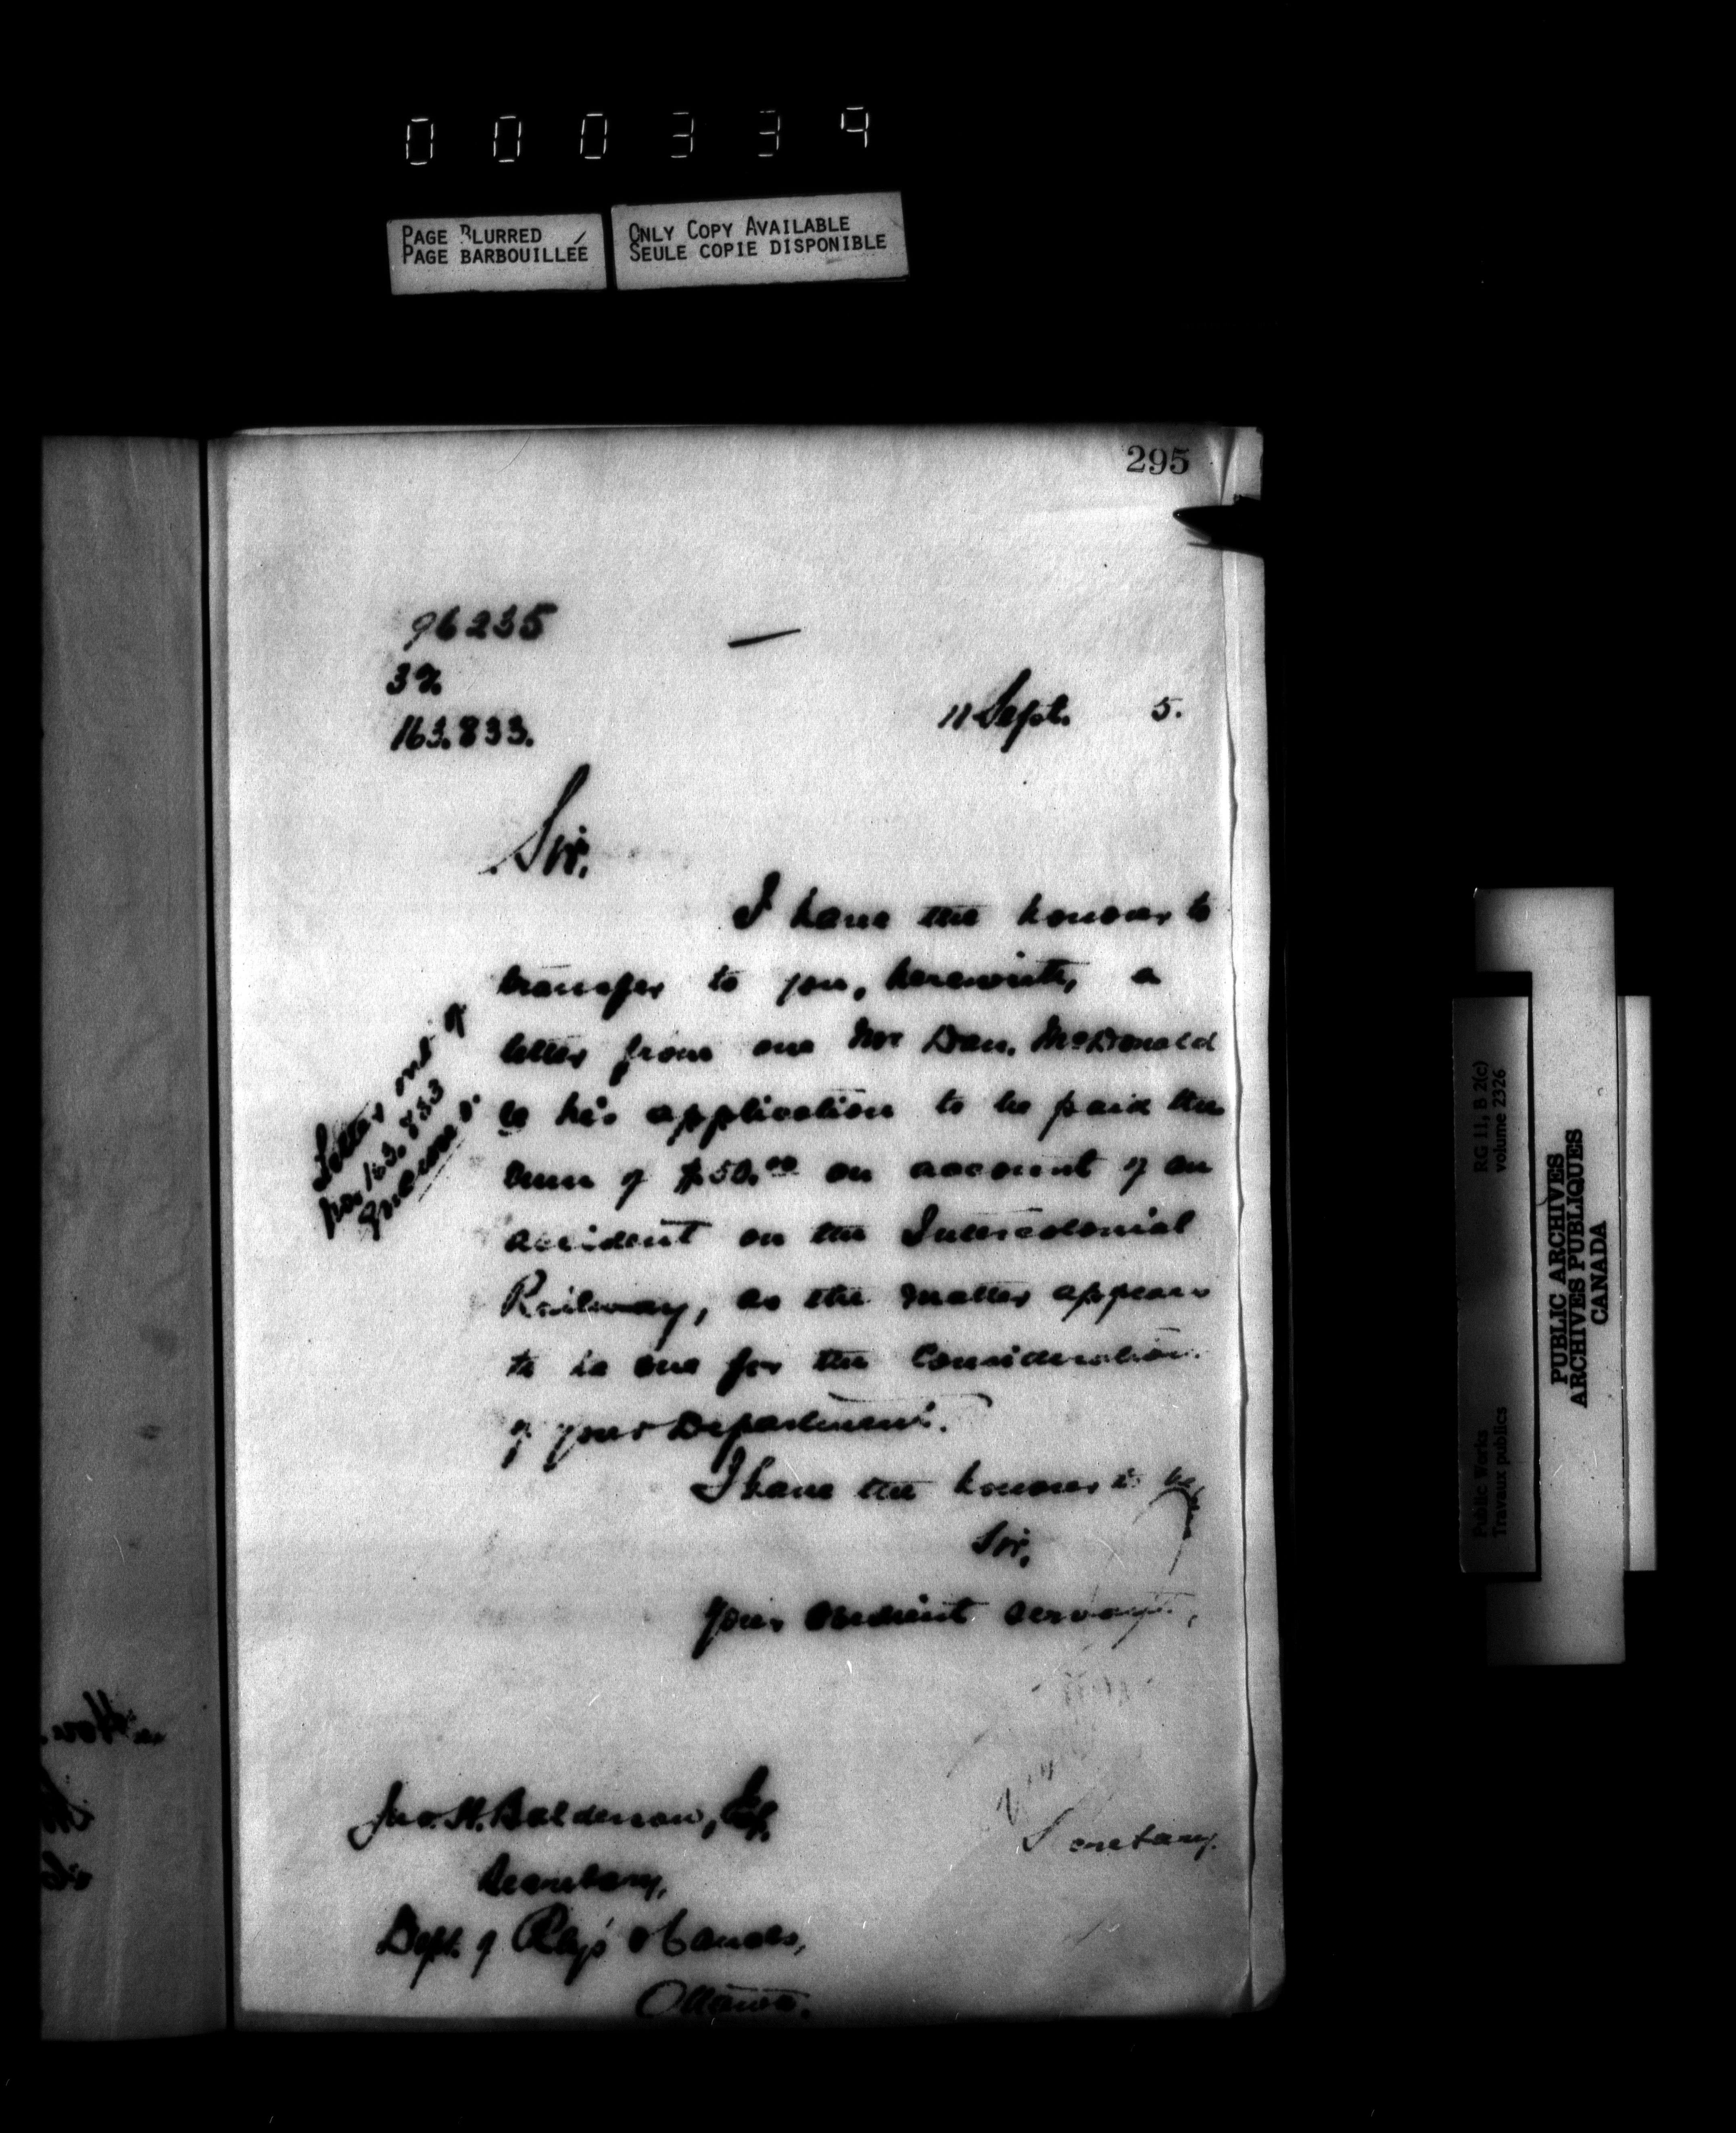 000339
PAGE BLURRED
PAGE BARBOUILLÉE
ONLY COPY AVAILABLE
SEULE COPIE DISPONIBLE
295
96235
163.833.
11 Sept. 5.
Sir,
I have the honour to
transfer to you, herewith, a
letter from one Mr Dan. McDonald
his application to be paid the
sum of $50.00 on account of an
accident on the Intercolonial
Railway, as the matter appears
to be one for the Consideration
of your Department.
I have the honour to be,
Sir,
Your obedient servant,
Letter out of
por 163.833
Secretary.
Jno. H. Balderson, Esq.
Secretary,
Dept. of Rlys & Canals,
Ottawa.
RG 11, B 2(c)
volume 2326
Public Works
Travaux publics
PUBLIC ARCHIVES
ARCHIVES PUBLIQUES
CANADA